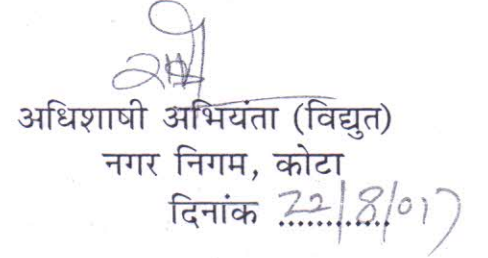 अधिशाषी अभियंता (विद्युत)
नगर निगम, कोटा
दिनांक 22/8/017